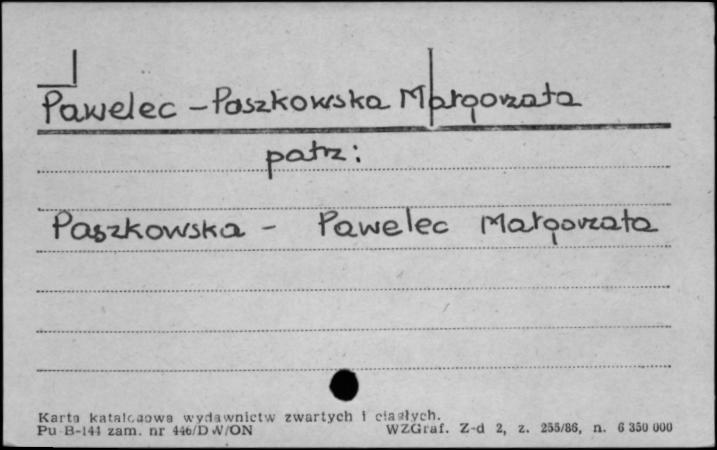 Pawelec - Paszkowska Małgorzata
patrz:
Paszkowska - Pawelec Małgorzata
Karta katalogowa wydawnictw zwartych i ciągłych.
Pu B-144 zam. nr 446/DW/ON WZGraf. Z-d 2, z. 255/86, n. 6 350 000